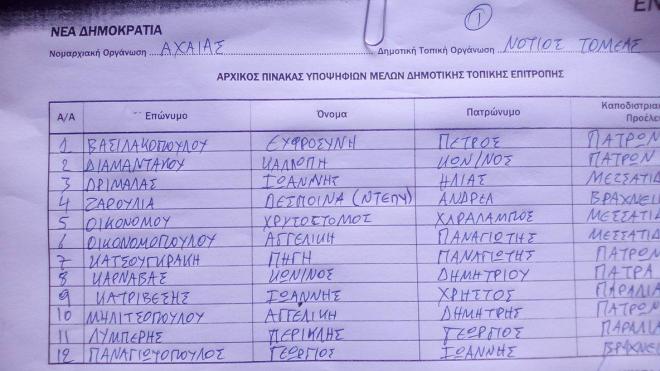 ΕΝ
1
ΝΕΑ ΔΗΜΟΚΡΑΤΙΑ
Νομαρχιακή Οργάνωση ΑΧΑΙΑΣ Δημοτική Τοπική Οργάνωση ΝΟΤΙΟΣ ΤΟΜΕΑΣ
ΑΡΧΙΚΟΣ ΠΙΝΑΚΑΣ ΥΠΟΨΗΦΙΩΝ ΜΕΛΩΝ ΔΗΜΟΤΙΚΗΣ ΤΟΠΙΚΗΣ ΕΠΙΤΡΟΠΗΣ
Α/Α Επώνυμο Όνομα Πατρώνυμο Καποδιστρια
Προέλε
1 ΒΑΣΙΛΑΚΟΠΟΥΛΟΥ ΕΥΦΡΟΣΥΝΗ ΠΕΤΡΟΣ ΠΑΤΡΩΝ
2 ΔΙΑΜΑΝΤΑΚΟΥ ΚΑΛΛΙΟΠΗ ΚΩΝ/ΝΟΣ ΠΑΤΡΩΝ
3 ΔΡΙΜΑΛΑΣ ΙΩΑΝΝΗΣ ΗΛΙΑΣ ΜΕΣΣΑΤΙΔ
4 ΖΑΡΟΥΛΙΑ ΔΕΣΠΟΙΝΑ (ΝΤΕΠΥ) ΑΝΔΡΕΑ ΒΡΑΧΝΕΙ
5 ΟΙΚΟΝΟΜΟΥ ΧΡΥΣΟΣΤΟΜΟΣ ΧΑΡΑΛΑΜΠΟΣ ΜΕΣΣΑΤΙΔ
6 ΟΙΚΟΝΟΜΟΠΟΥΛΟΥ ΑΓΓΕΛΙΚΗ ΠΑΝΑΓΙΩΤΗΣ ΜΕΣΣΑΤΙΔ
7 ΚΑΤΣΟΥΓΚΡΑΚΗ ΠΗΓΗ ΠΑΝΑΓΙΩΤΗΣ ΠΑΤΡΩΝ
8 ΚΑΡΝΑΒΑΣ ΚΩΝ/ΝΟΣ ΔΗΜΗΤΡΙΟΥ ΠΑΤΡΑ
9 ΚΑΤΡΙΒΕΣΗΣ ΙΩΑΝΝΗΣ ΧΡΗΣΤΟΣ ΠΑΡΑΛΙΑ
10 ΜΗΛΙΤΣΟΠΟΥΛΟΥ ΑΓΓΕΛΙΚΗ ΔΗΜΗΤΡΗΣ ΠΑΤΡΩΝ
11 ΛΥΜΠΕΡΗΣ ΠΕΡΙΚΛΗΣ ΓΕΩΡΓΙΟΣ ΠΑΡΑΛΙΑ
12 ΠΑΝΑΓΙΩΤΟΠΟΥΛΟΣ ΓΕΩΡΓΙΟΣ ΙΩΑΝΝΗΣ ΒΡΑΧΝΕΙ